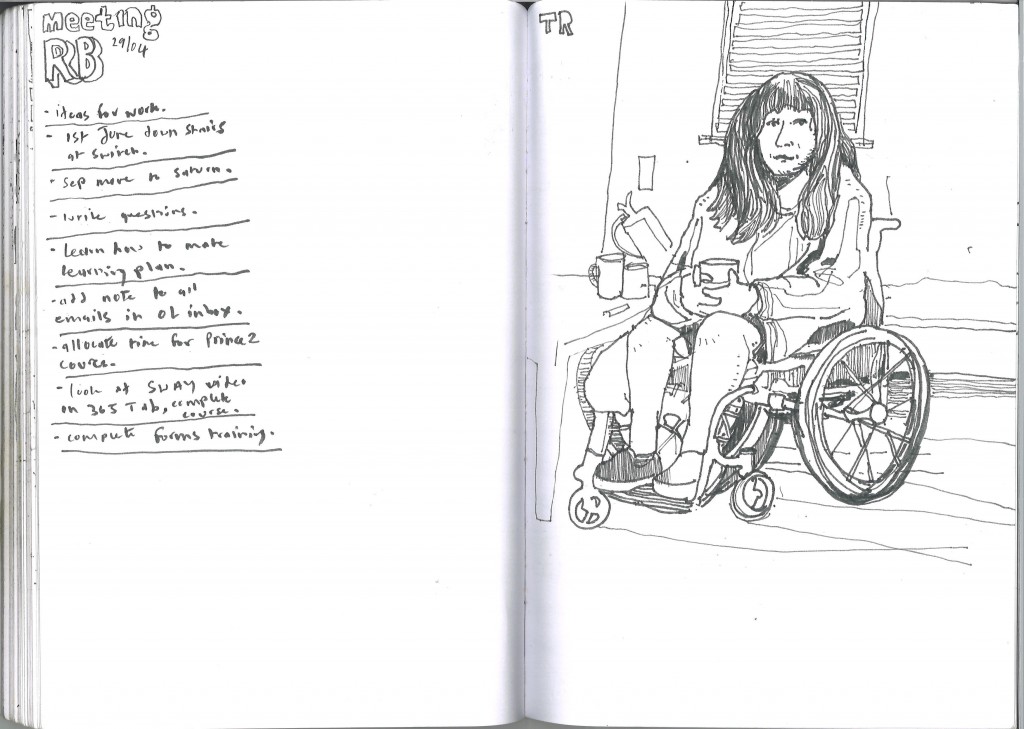 meeting
RB 29/04
- ideas for work.
- 1st June down stairs
at switch.
- Sep move to Saturn.
- write questions.
- learn how to make
learning plan.
- add note to all
emails in OL inbox.
- allocate time for Prince 2
course.
- look at SWAY video
on 365 Tab, complete
course.
- complete forms training.
TR